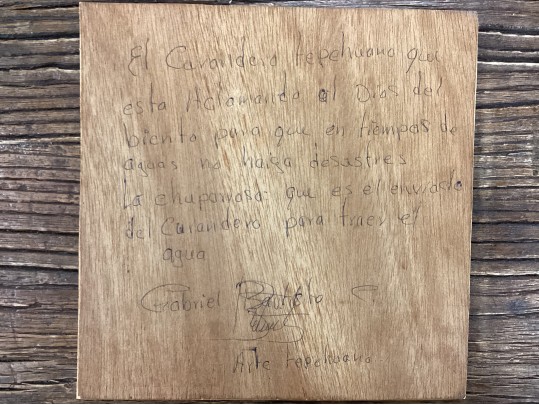 El Curandero tepehuano que
esta Aclamando al Dios del
biento para que en tiempos de
aguas no haga desastres
La chuparrosa: que es el enviado
del Curandero para traer el
agua
Gabriel Bautista
Arte tepehuano